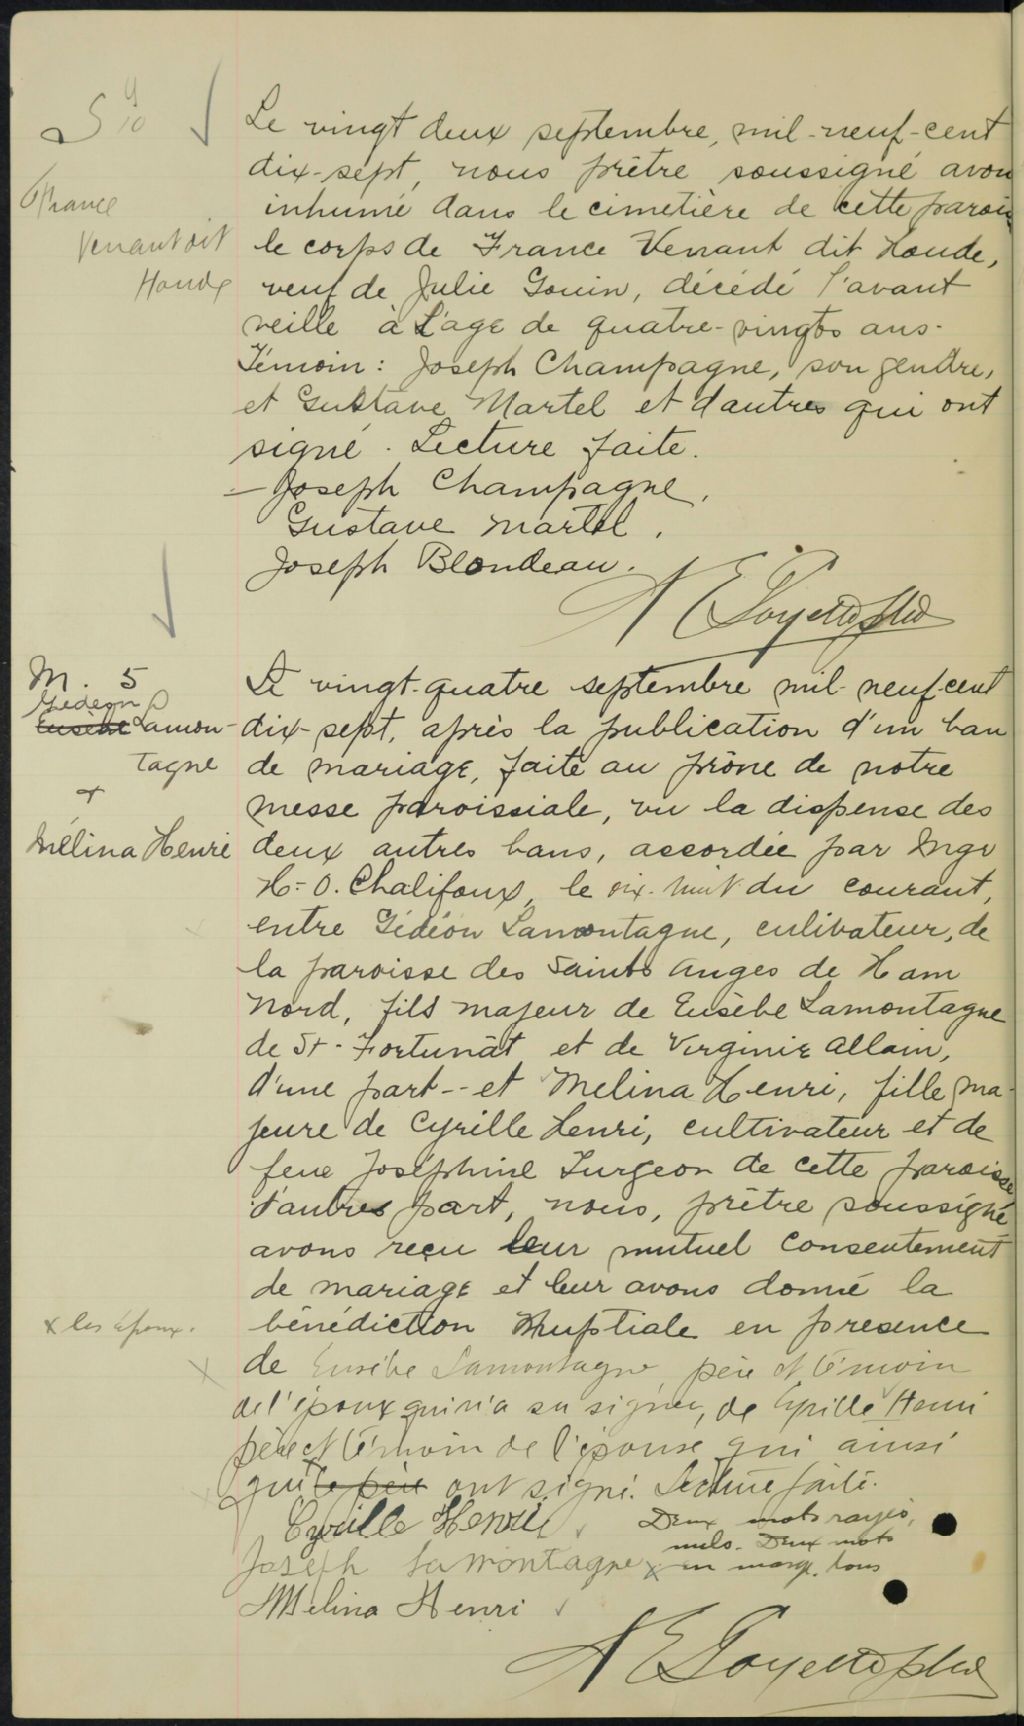 S 10
France
Venant dit
Houde
Le vingt deux septembre, mil-neuf-cent
dix-sept, nous prêtre soussigné avon
inhumé dans le cimetière de cette parois
le corps de France Venant dit Houde,
veuf de Julie Gouin, décédé l'avant
veille à l'age de quatre-vingts ans.
Témoin: Joseph Champagne, son gendre,
et Gustave Martel et d'autres qui ont
signé. Lecture faite.
Joseph Champagne,
Gustave Martel.
Joseph Blondeau.
M. 5
Gédéon
Eusèbe Lamon-
tagne
+
Mélina Henri
Le vingt-quatre septembre mil-neuf-cent
dix-sept, après la publication d'un ban
de mariage, faite au prône de notre
messe paroissiale, vu la dispense des
deux autres bans, accordée par Mgr
H.-O. Chalifoux, le dix-huit du courant,
entre Gédéon Lamontagne, culivateur, de
la paroisse des Saints Anges de Ham
Nord, fils majeur de Eusèbe Lamontagne
de St-Fortunat et de Virginie Allain,
d'une part -- et Melina Henri, fille ma-
jeure de Cyrille Henri, cultivateur et de
feue Joséphine Turgeon de cette paroisse
d'autres part, nous, prêtre soussigné
avons reçu leur mutuel consentement
de mariage et leur avons donné la
bénédiction nuptiale en presence
x les époux.
de Eusèbe Lamontagne, père et témoin
de l'époux qui n'a su signer, de Cyrille Henri
père et témoin de l'épouse qui ainsi
que le père ont signé. Lecture faite.
Cyrille Henri
Deux mots rayés,
nuls. Deux mots
Joseph Lamontagne x en marge. bons
Melina Henri